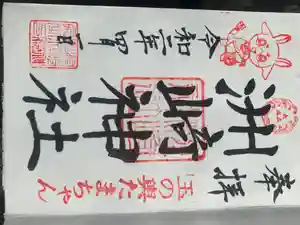 奉拝
洲崎神社
令和二年四月一日
玉の輿たまちゃん